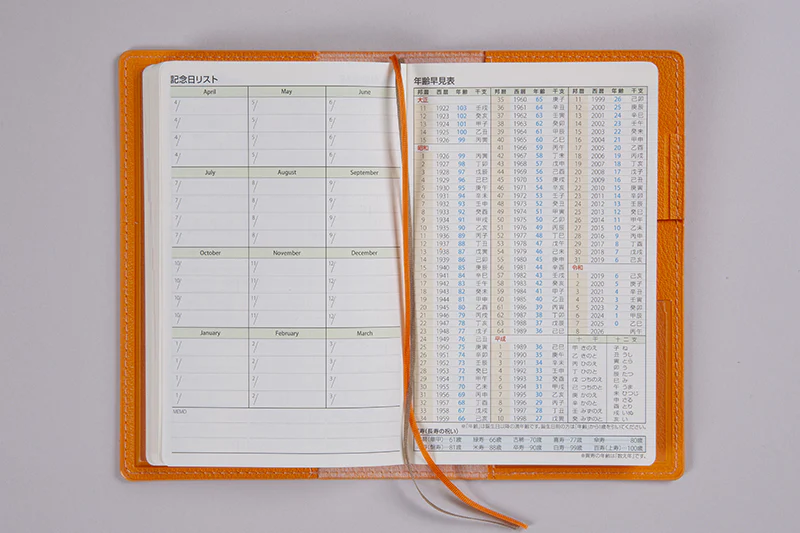 記念日リスト
April May June
4/ 5/ 6/
4/ 5/ 6/
4/ 5/ 6/
4/ 5/ 6/
July August September
7/ 8/ 9/
7/ 8/ 9/
7/ 8/ 9/
7/ 8/ 9/
October November December
10/ 11/ 12/
10/ 11/ 12/
10/ 11/ 12/
10/ 11/ 12/
January February March
1/ 2/ 3/
1/ 2/ 3/
1/ 2/ 3/
1/ 2/ 3/
MEMO
年齢早見表
邦暦 西暦 年齢 干支
大正
11 1922 103 壬戌
12 1923 102 癸亥
13 1924 101 甲子
14 1925 100 乙丑
15 1926 99 丙寅
昭和
1 1926 99 丙寅
2 1927 98 丁卯
3 1928 97 戊辰
4 1929 96 己巳
5 1930 95 庚午
6 1931 94 辛未
7 1932 93 壬申
8 1933 92 癸酉
9 1934 91 甲戌
10 1935 90 乙亥
11 1936 89 丙子
12 1937 88 丁丑
13 1938 87 戊寅
14 1939 86 己卯
15 1940 85 庚辰
16 1941 84 辛巳
17 1942 83 壬午
18 1943 82 癸未
19 1944 81 甲申
20 1945 80 乙酉
21 1946 79 丙戌
22 1947 78 丁亥
23 1948 77 戊子
24 1949 76 己丑
25 1950 75 庚寅
26 1951 74 辛卯
27 1952 73 壬辰
28 1953 72 癸巳
29 1954 71 甲午
30 1955 70 乙未
31 1956 69 丙申
32 1957 68 丁酉
33 1958 67 戊戌
34 1959 66 己亥
邦暦 西暦 年齢 干支
35 1960 65 庚子
36 1961 64 辛丑
37 1962 63 壬寅
38 1963 62 癸卯
39 1964 61 甲辰
40 1965 60 乙巳
41 1966 59 丙午
42 1967 58 丁未
43 1968 57 戊申
44 1969 56 己酉
45 1970 55 庚戌
46 1971 54 辛亥
47 1972 53 壬子
48 1973 52 癸丑
49 1974 51 甲寅
50 1975 50 乙卯
51 1976 49 丙辰
52 1977 48 丁巳
53 1978 47 戊午
54 1979 46 己未
55 1980 45 庚申
56 1981 44 辛酉
57 1982 43 壬戌
58 1983 42 癸亥
59 1984 41 甲子
60 1985 40 乙丑
61 1986 39 丙寅
62 1987 38 丁卯
63 1988 37 戊辰
64 1989 36 己巳
平成
1 1989 36 己巳
2 1990 35 庚午
3 1991 34 辛未
4 1992 33 壬申
5 1993 32 癸酉
6 1994 31 甲戌
7 1995 30 乙亥
8 1996 29 丙子
9 1997 28 丁丑
10 1998 27 戊寅
邦暦 西暦 年齢 干支
11 1999 26 己卯
12 2000 25 庚辰
13 2001 24 辛巳
14 2002 23 壬午
15 2003 22 癸未
16 2004 21 甲申
17 2005 20 乙酉
18 2006 19 丙戌
19 2007 18 丁亥
20 2008 17 戊子
21 2009 16 己丑
22 2010 15 庚寅
23 2011 14 辛卯
24 2012 13 壬辰
25 2013 12 癸巳
26 2014 11 甲午
27 2015 10 乙未
28 2016 9 丙申
29 2017 8 丁酉
30 2018 7 戊戌
31 2019 6 己亥
令和
1 2019 6 己亥
2 2020 5 庚子
3 2021 4 辛丑
4 2022 3 壬寅
5 2023 2 癸卯
6 2024 1 甲辰
7 2025 0 乙巳
8 2026 丙午
十干 十二支
甲 きのえ 子 ね
乙 きのと 丑 うし
丙 ひのえ 寅 とら
丁 ひのと 卯 う
戊 つちのえ 辰 たつ
己 つちのと 巳 み
庚 かのえ 午 うま
辛 かのと 未 ひつじ
壬 みずのえ 申 さる
癸 みずのと 酉 とり
戌 いぬ
亥 い
※「年齢」は誕生日以降の満年齢です。誕生日前の方は「年齢」から1歳を引いてください。
寿(長寿の祝い)
―61歳 緑寿―66歳 古稀―70歳 喜寿―77歳 傘寿―80歳
―81歳 米寿―88歳 卒寿―90歳 白寿―99歳 百寿(上寿)―100歳
※賀寿の年齢は「数え年」です。